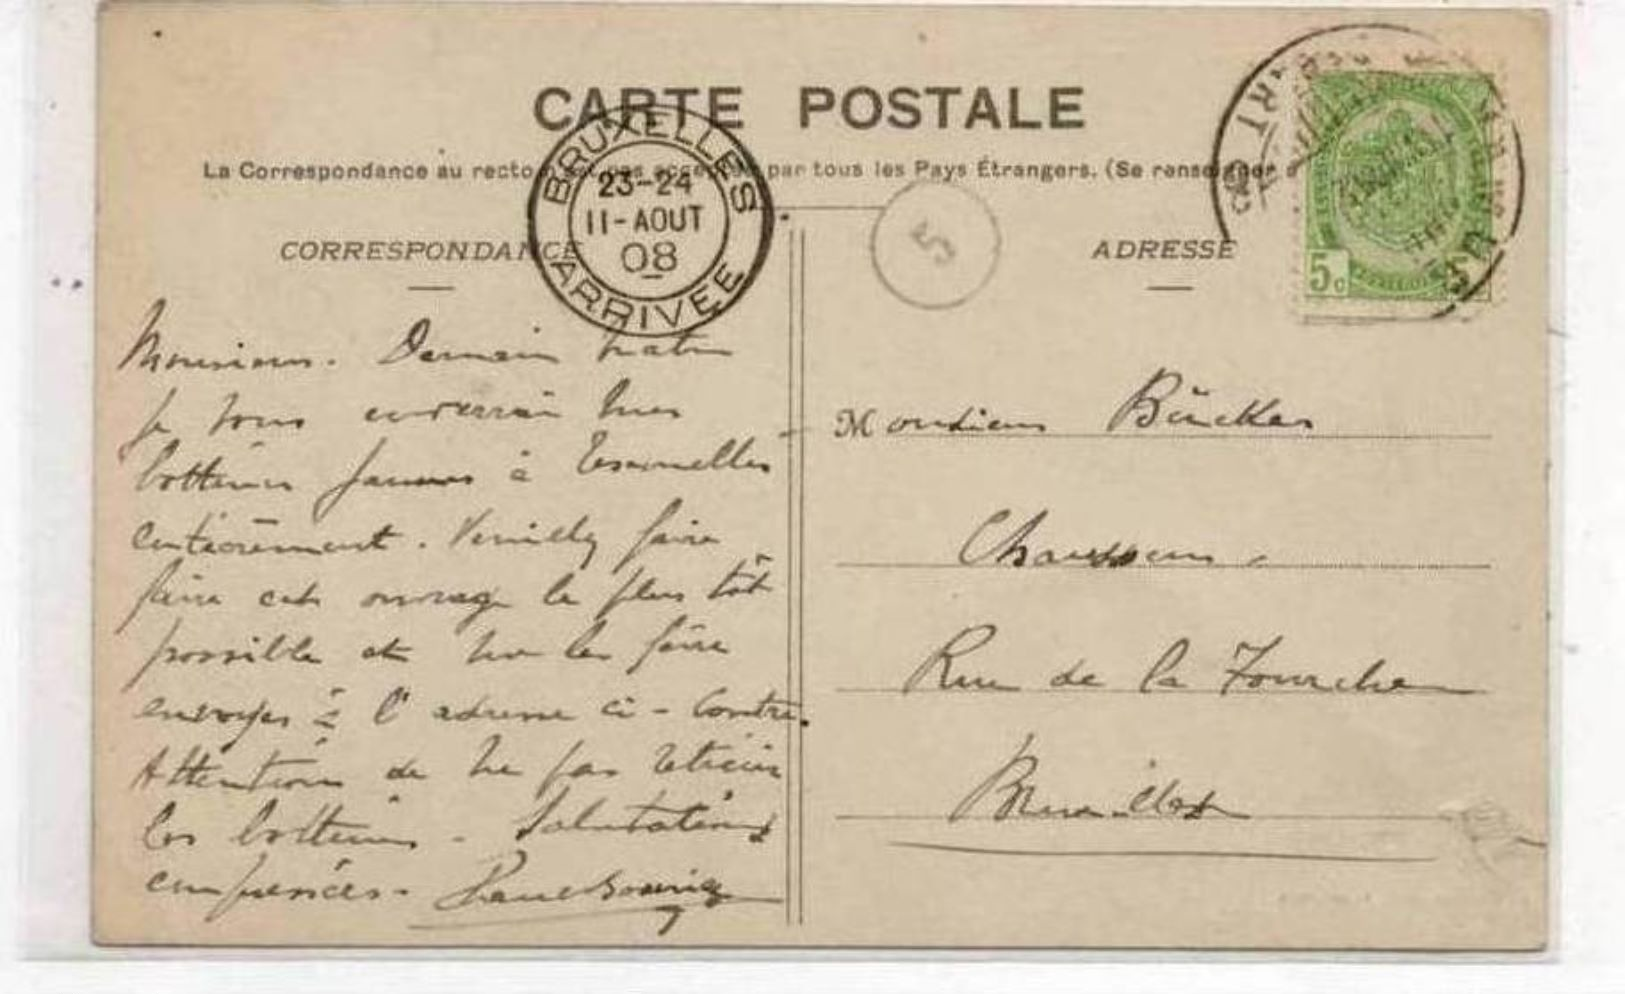 CARTE POSTALE
La Correspondance au recto n'est pas acceptée par tous les Pays Étrangers. (Se renseigner à
BRUXELLES
23-24
11-AOUT
08
ARRIVÉE
5
5c
CORRESPONDANCE
ADRESSE
Monsieur. Demain matin
je vous enverrai mes
bottines jaunes à ressemeller
entièrement. Veuillez faire
faire cet ouvrage le plus tôt
possible et me les faire
envoyer à l'adresse ci-contre.
Attention de ne pas rétrécir
les bottines. Salutations
empressées.
Monsieur Bückes
Chausseur
Rue de la Fourche
Bruxelles